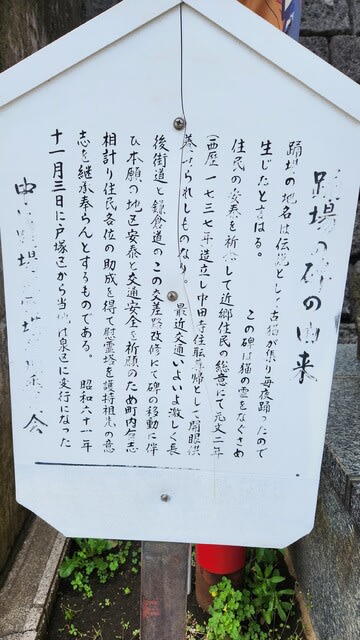 踊場の碑の由来
踊場の地名は伝説として古猫が集り毎夜踊ったので
生じたと言はる。 この碑は猫の霊をなぐさめ
住民の安泰を祈念して近郷住民の総意にて元文二年
(西歴一七三七年造立し中田寺住職を導師として開眼供
養せられしものなり。 最近交通いよいよ激しく長
後街道と鎌倉道のこの交差路改修にて碑の移動に伴
ひ本願の地区安泰と交通安全を祈願のため町内有志
相計り住民各位の助成を得て慰霊塔を護持祖先の意
志を継承奉らんとするものである。 昭和六十一年
十一月三日に戸塚区から当地は泉区に変行になった
中 踊場 会